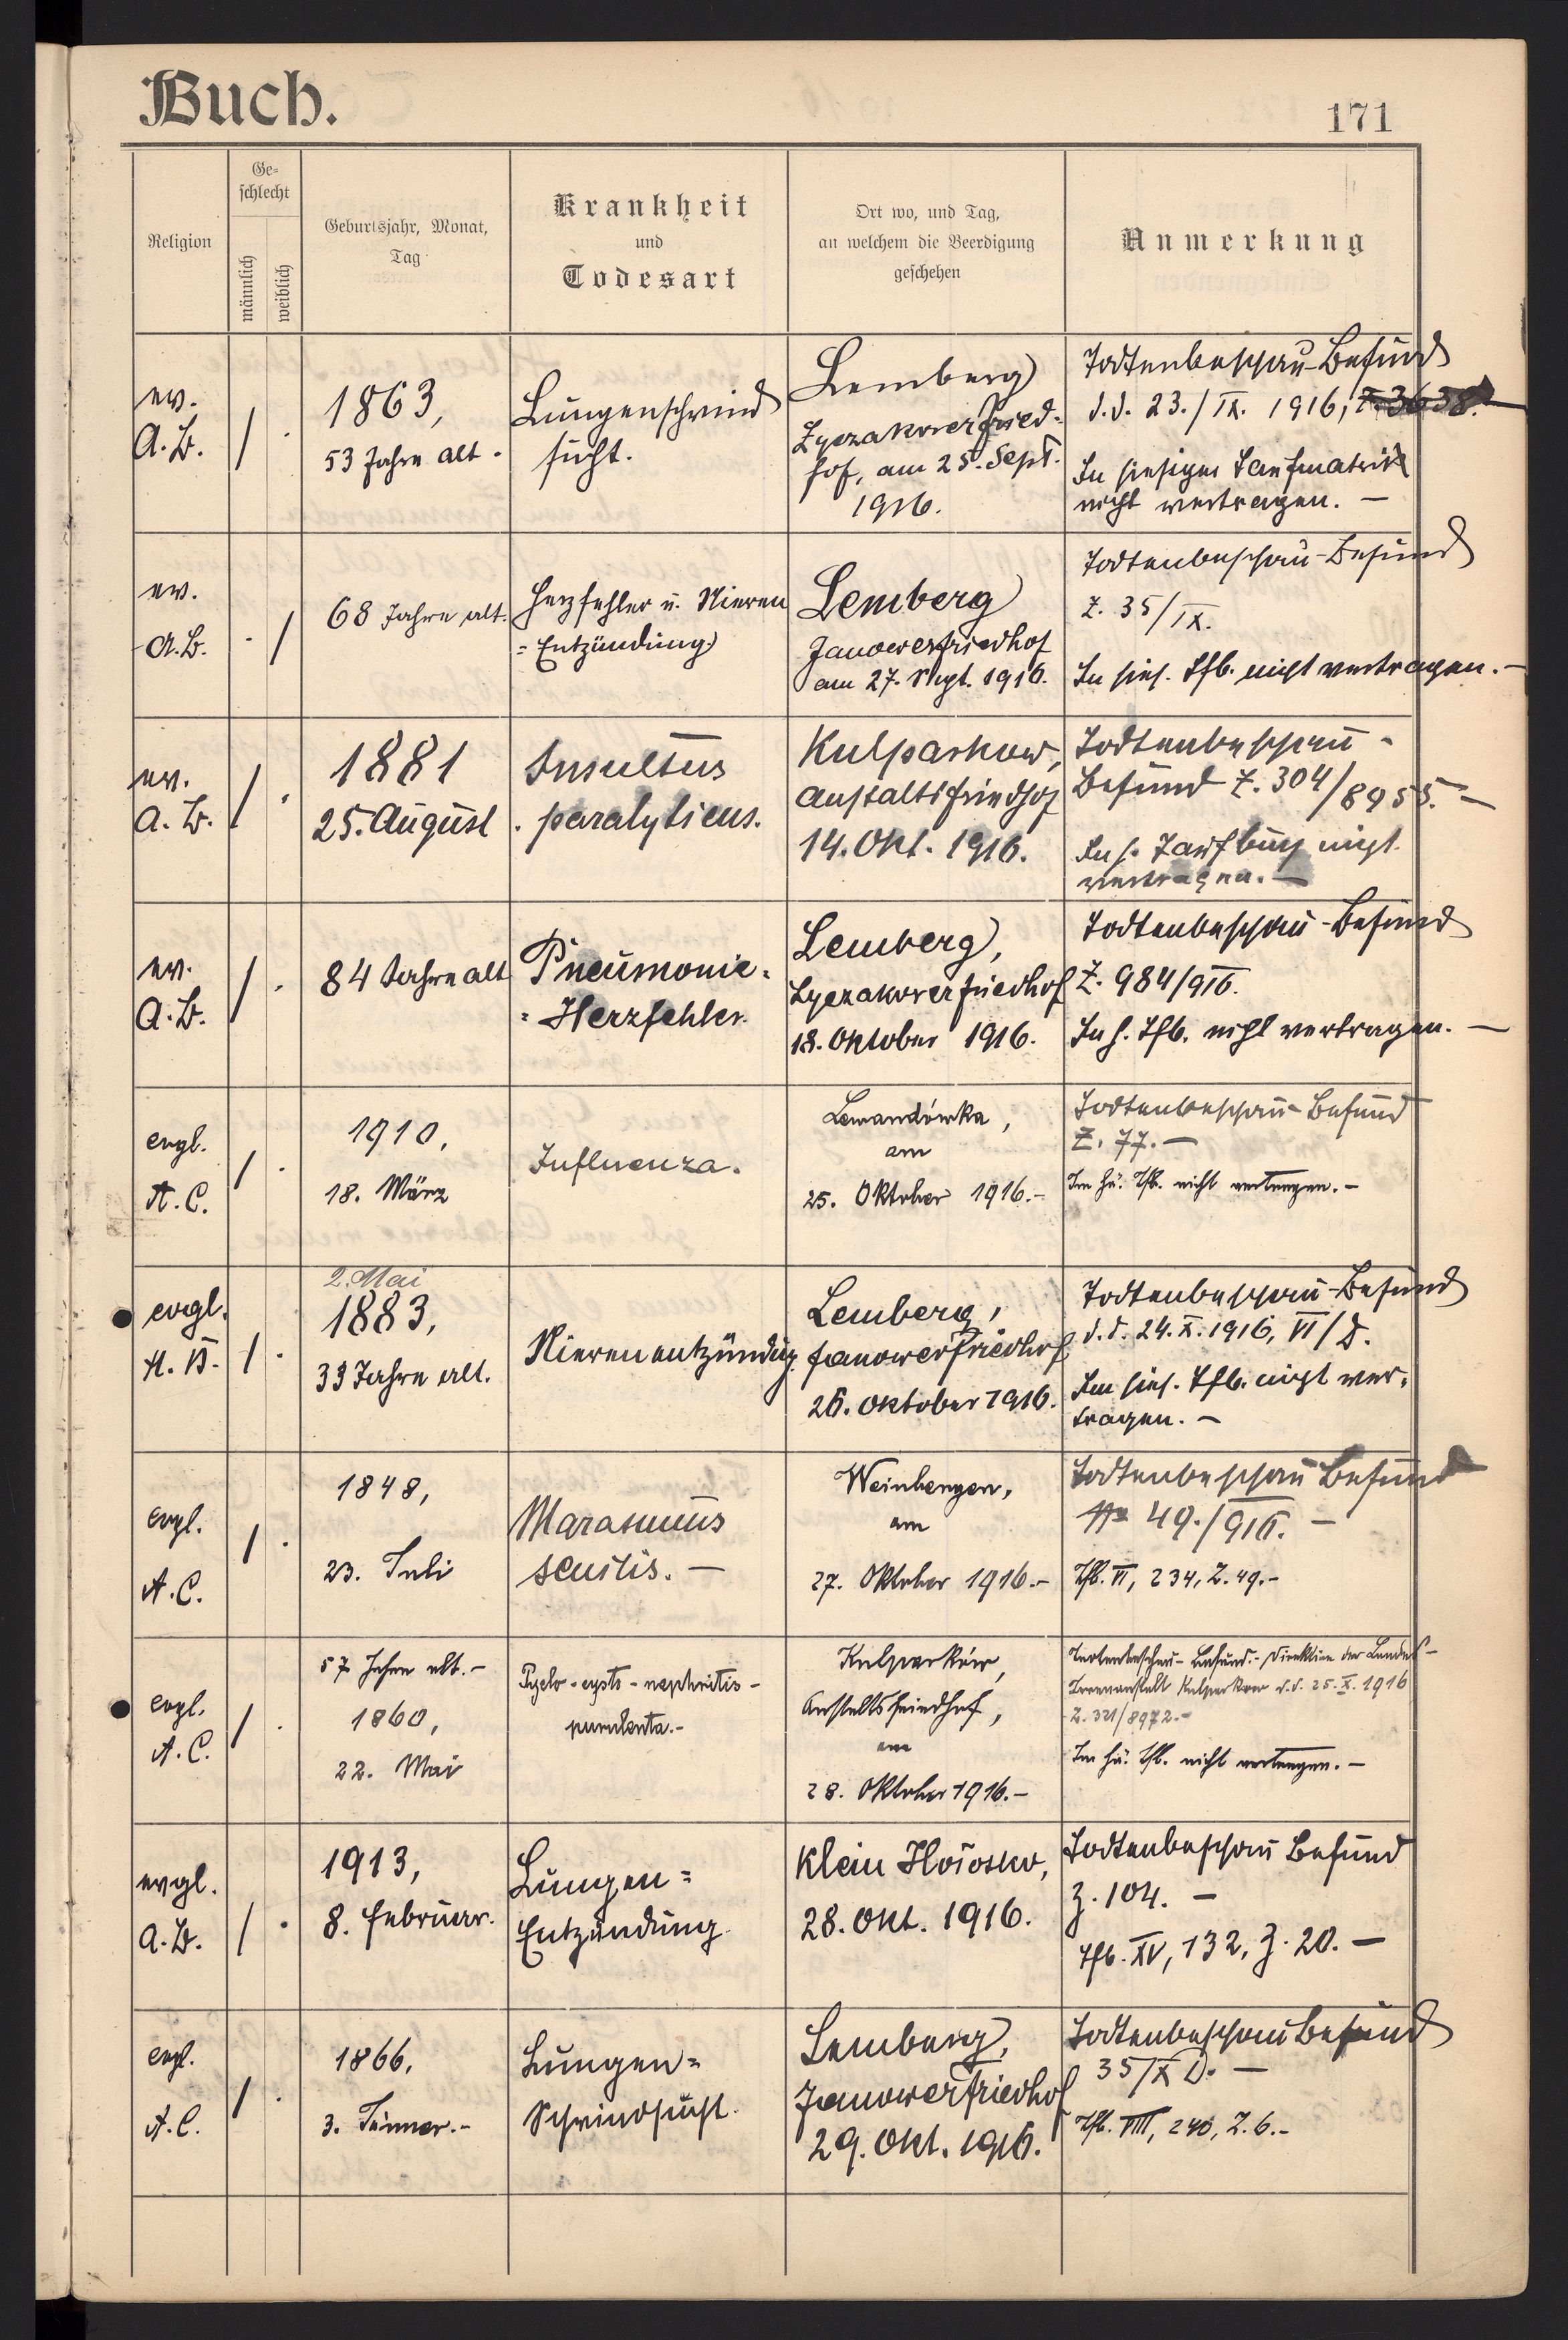 Buch.
171
Religion
Ge=
schlecht
männlich
weiblich
Geburtsjahr, Monat,
Tag
Krankheit
und
Todesart
Ort wo, und Tag,
an welchem die Beerdigung
geschehen
Anmerkung
ev.
A. B.
1863,
53 Jahre alt.
Lungenschwind
sucht.
Lemberg
Lyczakower Fried=
hof, am 25. Sept.
1916.
Todtenbeschau-Befund
d.d. 23./IX. 1916, Z. 3638.
In hiesiger Taufmatrik
nicht vertragen. —
ev.
A.B.
68 Jahre alt.
Herzfehler u. Nieren
=Entzündung
Lemberg
Janowerfriedhof
am 27. Sept. 1916.
Todtenbeschau-Befund
Z. 35/IX.
In hies. Tfb. nicht vertragen. —
ev.
A. B.
1881
25. August
Insultus
paralyticus.
Kulparkow,
Anstaltsfriedhof
14. Okt. 1916.
Todtenbeschau-
Befund Z. 304/8955. —
In h. Taufbuch nicht
vertragen. —
ev.
A.B.
84 Jahre alt
Pneumonie-
=Herzfehler.
Lemberg,
Lyczakowerfriedhof
18. Oktober 1916.
Todtenbeschau-Befund
Z. 984/916.
In h. Tfb. nicht vertragen. —
evgl.
A. C.
1910,
18. März
Influenza.
Lewandówka,
am
25. Oktober 1916.-
Todtenbeschau-Befund
Z. 77. —
Im hä. Tfb. nicht vertragen. -
evgl.
A. B.
2. Mai
1883,
33 Jahre alt.
Nierenentzündung.
Lemberg,
Janowerfriedhof
26. Oktober 1916.
Todtenbeschau-Befund
d.d. 24. X. 1916, VI/D.
Im hies. Tfb. nicht ver=
tragen. -
evgl.
A.C.
1848,
23. Juli
Marasmus
senilis. —
Weinbergen,
am
27. Oktober 1916.-
Todtenbeschau Befund
No 49./916. —
Tfb. VI, 234, Z. 49.-
evgl.
A. C.
57 Jahre alt.-
1860,
22. Mai
Pyelo-cysto-nephritis-
purulenta.-
Kulparków,
Anstaltsfriedhof,
am
28. Oktober 1916.-
Todtenbeschau-Befund.- Direktion der Landes-
Irrenanstalt Kulparkow d.d. 25. X. 1916
Z. 321/8972.-
Im hä. Tfb. nicht vertragen. -
evgl.
A.B.
1913,
8. Februar.
Lungen=
Entzündung.
Klein Hołosko,
28. Okt. 1916.
Todtenbeschau Befund
Z. 104. —
Tfb. XV, 132, Z. 20. —
evgl.
A.C.
1866,
3. Jänner.-
Lungen=
Schwindsucht.
Lemberg,
Janowerfriedhof
29. Okt. 1916.
Todtenbeschau Befund
35/X D. —
Tfb. VIII, 240, Z. 6.-